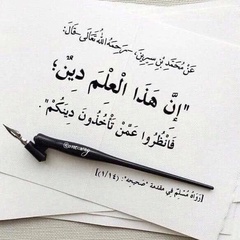 عَنْ مُحَمَّدِ بْنِ سِيرِينَ، -رَحِمَهُ اللهُ تَعَالَى- قَالَ:
"إِنَّ هَذَا الْعِلْمَ دِينٌ؛
فَانْظُرُوا عَمَّنْ تَأْخُذُونَ دِينَكُمْ".
[رَوَاهُ مُسْلِمٌ فِي مقدمة "صَحِيحِهِ": (١/١٤)]